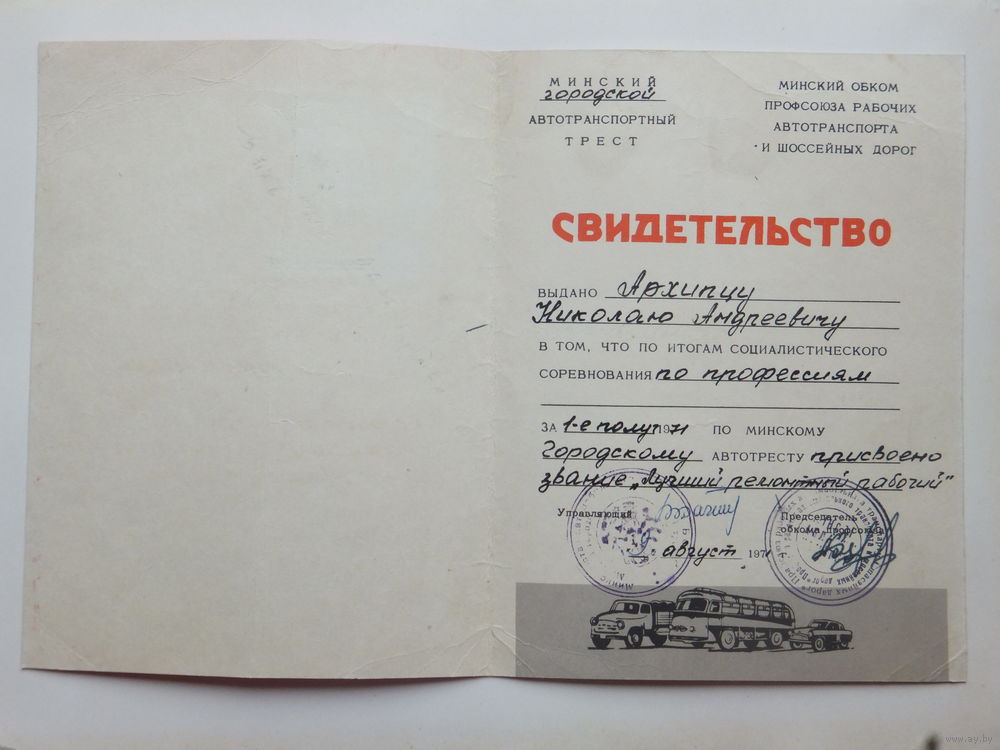 МИНСКИЙ
городской
АВТОТРАНСПОРТНЫЙ
ТРЕСТ
МИНСКИЙ ОБКОМ
ПРОФСОЮЗА РАБОЧИХ
АВТОТРАНСПОРТА
И ШОССЕЙНЫХ ДОРОГ
СВИДЕТЕЛЬСТВО
ВЫДАНО Архипцу
Николаю Андреевичу
В ТОМ, ЧТО ПО ИТОГАМ СОЦИАЛИСТИЧЕСКОГО
СОРЕВНОВАНИЯ по профессиям
ЗА 1-е полуг. 1971 ПО МИНСКОМУ
Городскому АВТОТРЕСТУ присвоено
звание „Лучший ремонтный рабочий"
Управляющий
Председатель
обкома профсоюза
август 197
www.ay.by